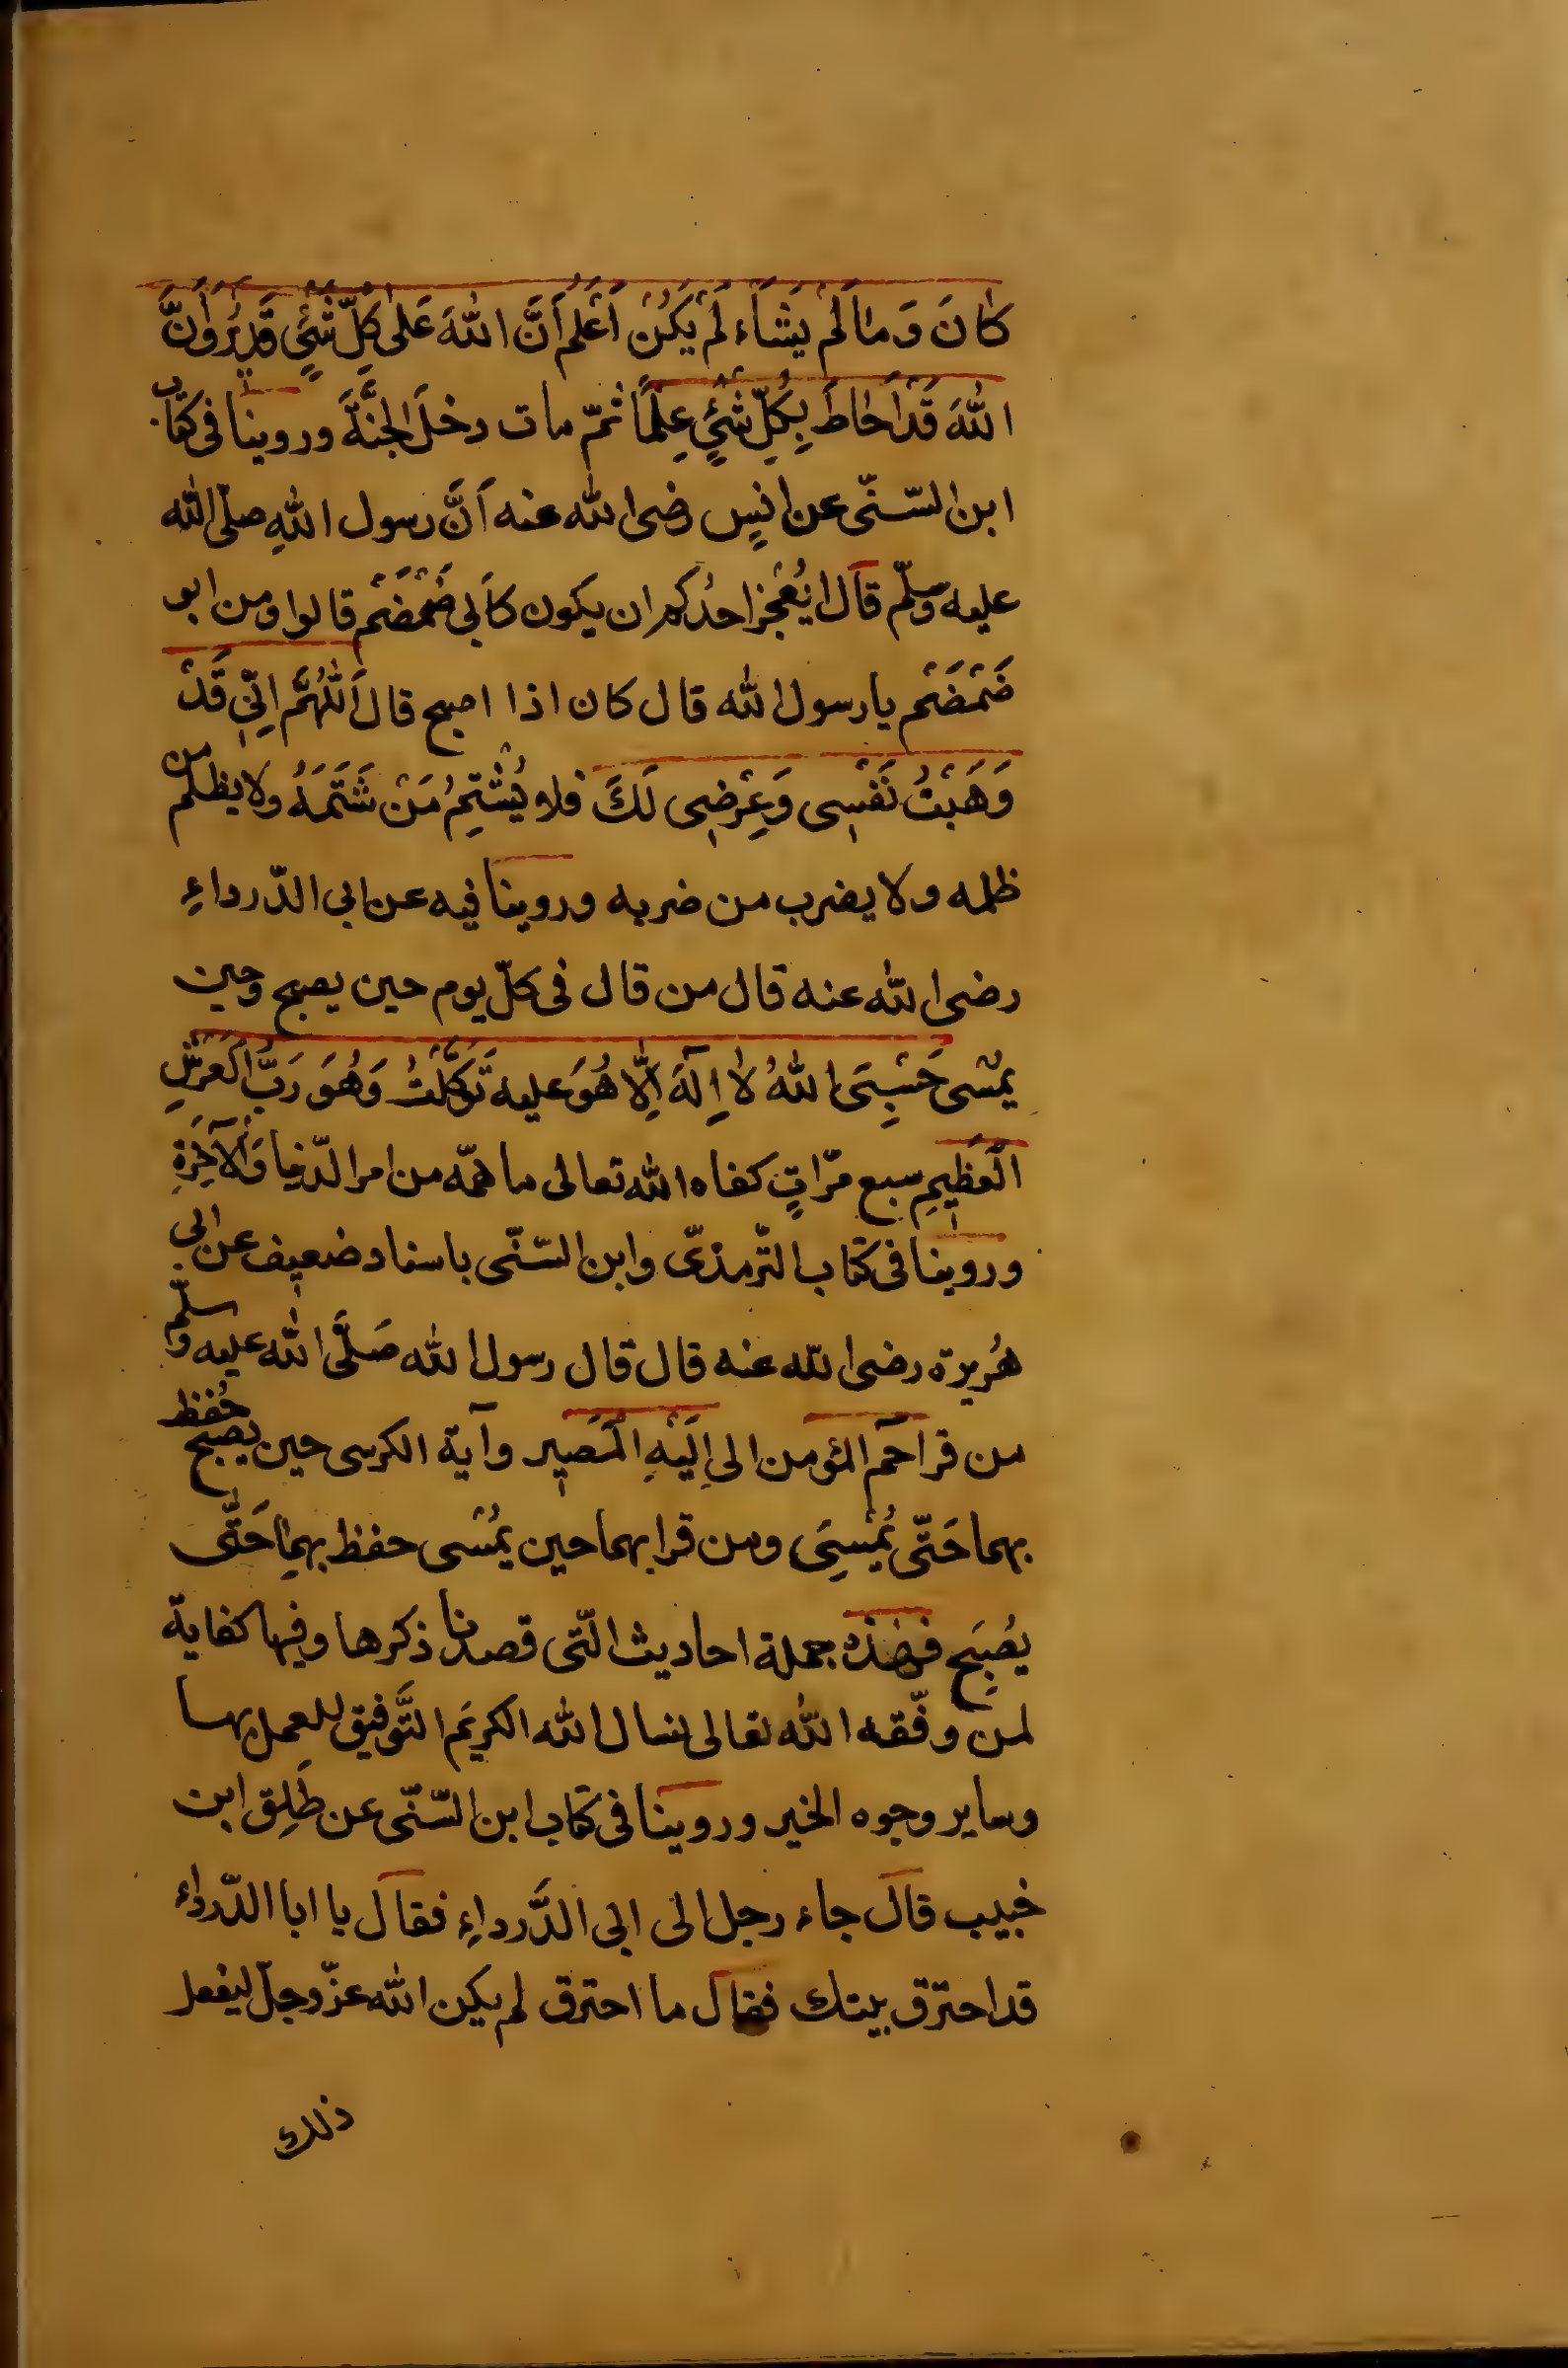 كَانَ وَمَا لَمْ يَشَاء لَمْ يَكُنْ اَعْلَمُ اَنَّ اللّٰهَ عَلٰى كُلِّ شَيْءٍ قَدِيرٌ وَاَنَّ
اللّٰهَ قَدْ اَحَاطَ بِكُلِّ شَيْءٍ عِلْمًا ثمّ مات دخلَ الجَنَّةَ وروينا فى كتاب
ابن السّنّى عن انسٍ رضى الله عنه اَنَّ رسول اللهِ صلّى الله
عليه وسلّم قال ايُعْجِز احدُكم ان يكون كاَبى ضَمْضَمْ قالوا ومن ابو
ضَمْضَمْ يا رسول الله قال كان اذا اصبح قال اَللّٰهُمَّ اِنِّى قَدْ
وَهَبْتُ نَفْسِى وَعِرْضِى لَكَ فلا يُشْتِمُ مَنْ شَتَمَهُ ولا يظلم من
ظلمه ولا يضرب من ضربه وروينا فيه عن ابى الدّرداءِ
رضى الله عنه قال من قال فى كلّ يوم حين يصبح وحين
يمْسى حَسْبِىَ اللّٰهُ لَا اِلٰهَ اِلَّا هُوَ عليه تَوَكَّلْتُ وَهُوَ رَبُّ الْعَرْشِ
الْعَظِيمِ سبع مرّاتٍ كفاه الله تعالى ما همّه من امر الدّنيا وَالْآخِرَةِ
وروينا فى كتاب التّرمذىّ وابن السّنّى باسناد ضعيف عن ابى
هُريرة رضى الله عنه قال قال رسول الله صَلَّى الله عليه وسلّم
من قرا حم المؤمن الى اِلَيْهِ الْمَصِير وآية الكرسى حين يصبح حُفظ
بهما حَتّى يُمْسِىَ ومن قرا بهما حين يمُسْى حفظ بهِمَا حَتَّى
يصُبِحَ فهذه جملة احاديث الّتى قصدنا ذكرها وفيها كفاية
لمن وفّقه الله تعالى نسال الله الكريَم التَّوفيق للعمل بها
وساير وجوه الخير وروينا فى كتاب ابن السّنّى عن طَلِق ابن
خبيب قال جاء رجل الى ابى الدَّرداءِ فقال يا ابا الدّرداء
قد احترق بيتك فقال ما احترق لم يكن الله عزّ وجلّ ليفعل
ذلك